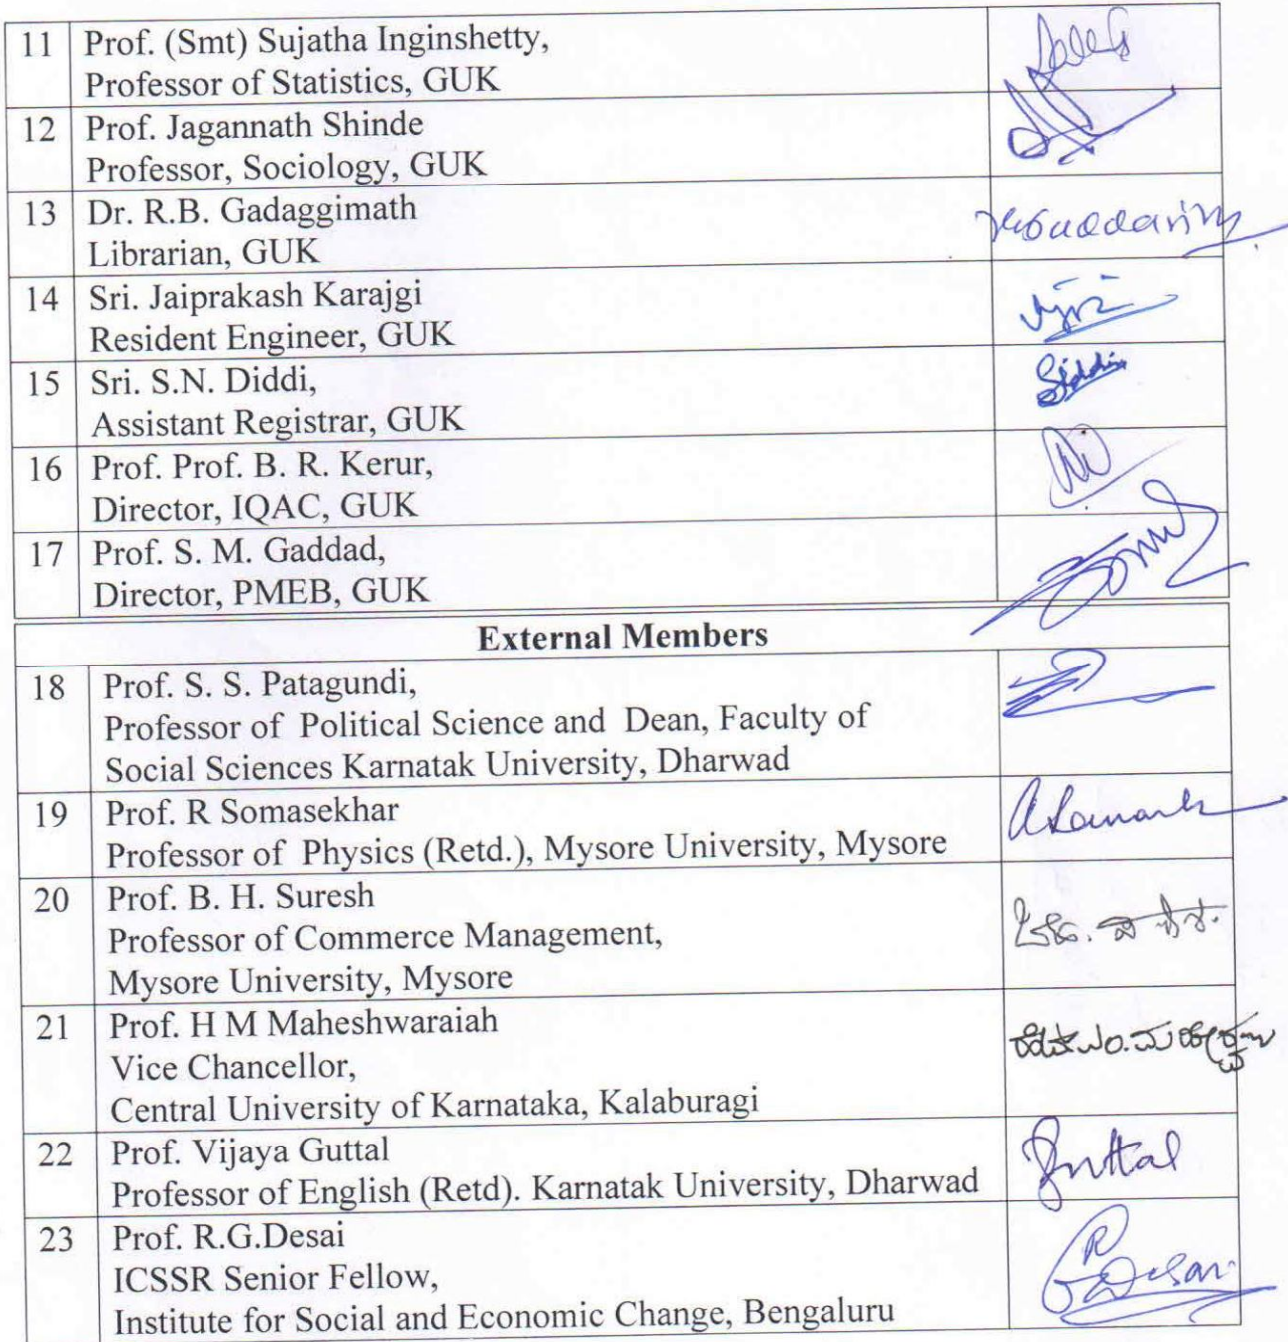 11 Prof. (Smt) Sujatha Inginshetty,
Professor of Statistics, GUK
12 Prof. Jagannath Shinde
Professor, Sociology, GUK
13 Dr. R.B. Gadaggimath
Librarian, GUK
14 Sri. Jaiprakash Karajgi
Resident Engineer, GUK
15 Sri. S.N. Diddi,
Assistant Registrar, GUK
16 Prof. Prof. B. R. Kerur,
Director, IQAC, GUK
17 Prof. S. M. Gaddad,
Director, PMEB, GUK
External Members
18 Prof. S. S. Patagundi,
Professor of Political Science and Dean, Faculty of
Social Sciences Karnatak University, Dharwad
19 Prof. R Somasekhar
Professor of Physics (Retd.), Mysore University, Mysore
20 Prof. B. H. Suresh
Professor of Commerce Management,
Mysore University, Mysore
21 Prof. H M Maheshwaraiah
Vice Chancellor,
Central University of Karnataka, Kalaburagi
22 Prof. Vijaya Guttal
Professor of English (Retd). Karnatak University, Dharwad
Guttal
23 Prof. R.G.Desai
ICSSR Senior Fellow,
Institute for Social and Economic Change, Bengaluru